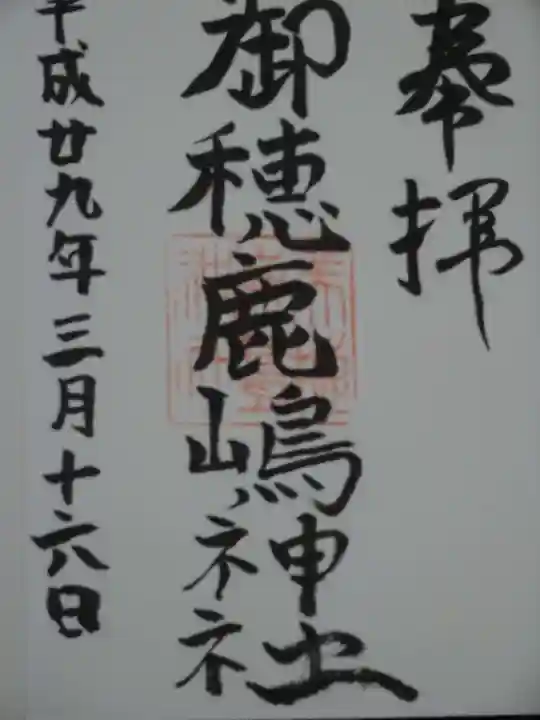 奉拝
御穂鹿嶋神社
平成廿九年三月十六日